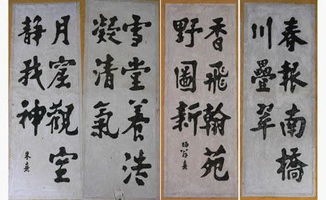 春報南橋
川疊翠
香飛翰苑
野圖新
雪堂養浩
凝清氣
月窟觀空
靜我神
朱熹